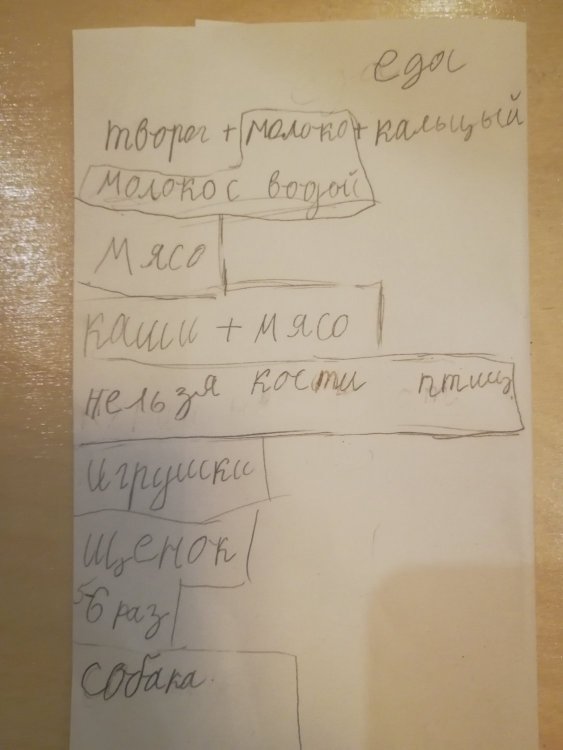 еда
творог + молоко + кальцый
молоко с водой
мясо
каши + мясо
нельзя кости птиц
игрушки
щенок
5 6 раз
собака